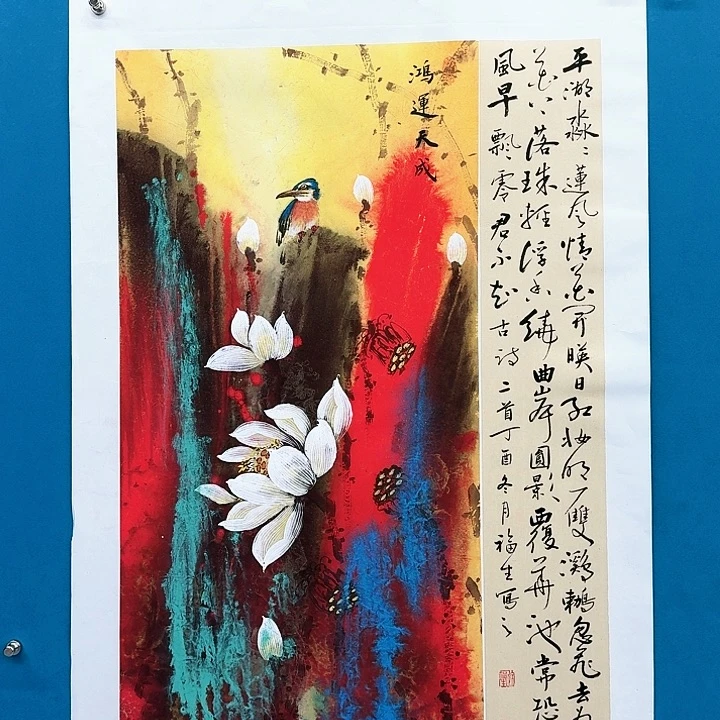 鴻運天成
平湖淼淼蓮風清花開暎日紅妝明一雙鸂鶒忽飛去為
花〻落珠輕浮香繞曲岸圓影覆華池常恐
風早飄零君不知古詩二首丁酉冬月福生寫之